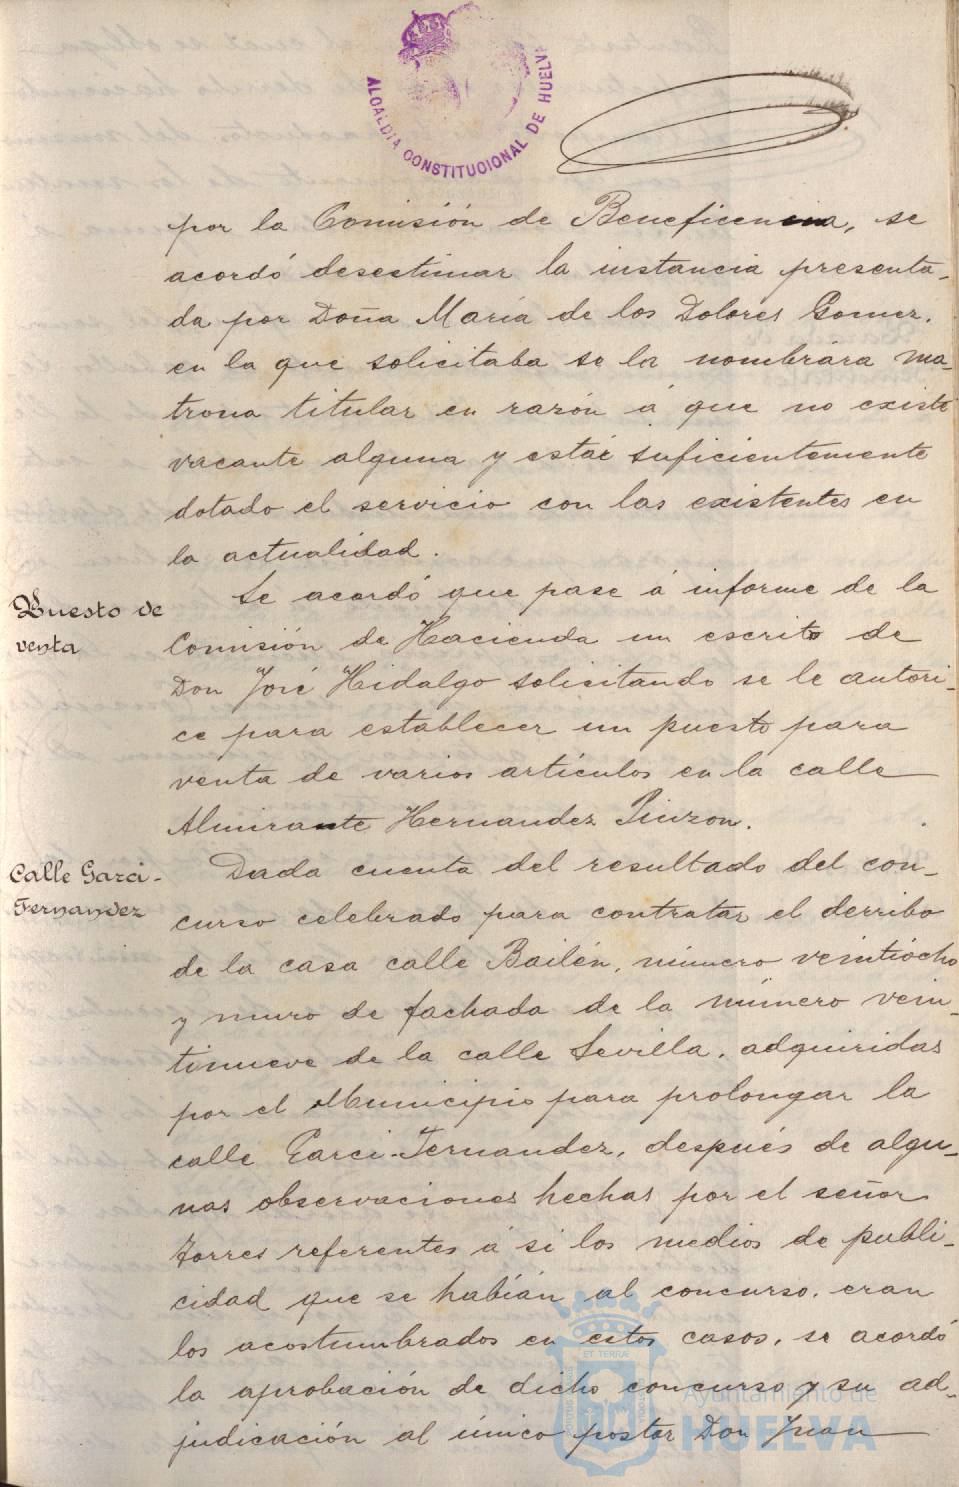 ALCALDIA CONSTITUCIONAL DE HUELVA
por la Comisión de Beneficencia, se
acordó desestimar la instancia presenta-
da por Doña María de los Dolores Gomez,
en la que solicitaba se la nombrára ma-
trona titular en razón á que no existe
vacante alguna y estár suficientemente
dotado el servicio con las existentes en
la actualidad.
Puesto de
venta
Se acordó que pase á informe de la
Comisión de Hacienda un escrito de
Don José Hidalgo solicitando se le autori-
ce para establecer un puesto para
venta de varios artículos en la calle
Almirante Hernandez Pinzon.
Calle Garci-
Fernandez
Dada cuenta del resultado del con-
curso celebrado para contratar el derribo
de la casa calle Bailén, número veintiocho
y muro de fachada de la número vein-
tinueve de la calle Sevilla, adquiridas
por el Municipio para prolongar la
calle Garci-Fernandez, después de algu-
nas observaciones hechas por el señor
Torres referentes á si los medios de publi-
cidad que se habían al concurso, eran
los acostumbrados en estos casos, se acordó
la aprobación de dicho concurso y su ad-
judicación al único postor Don Juan
Ayuntamiento de
HUELVA
ET TERRAE